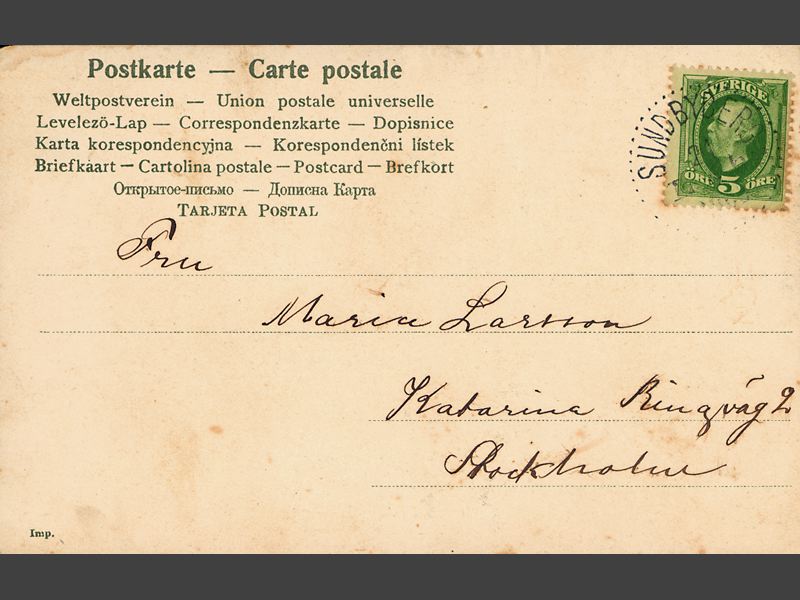 Postkarte — Carte postale
Weltpostverein — Union postale universelle
Levelezö-Lap — Correspondenzkarte — Dopisnice
Karta korespondencyjna — Korespondenční lístek
Briefkaart — Cartolina postale — Postcard — Brefkort
Открытое-письмо — Дописна Карта
Tarjeta Postal
SVERIGE
SUNDBYBERG
ÖRE 5 ÖRE
Fru
Maria Larsson
Katarina Ringväg 2
Stockholm
Imp.